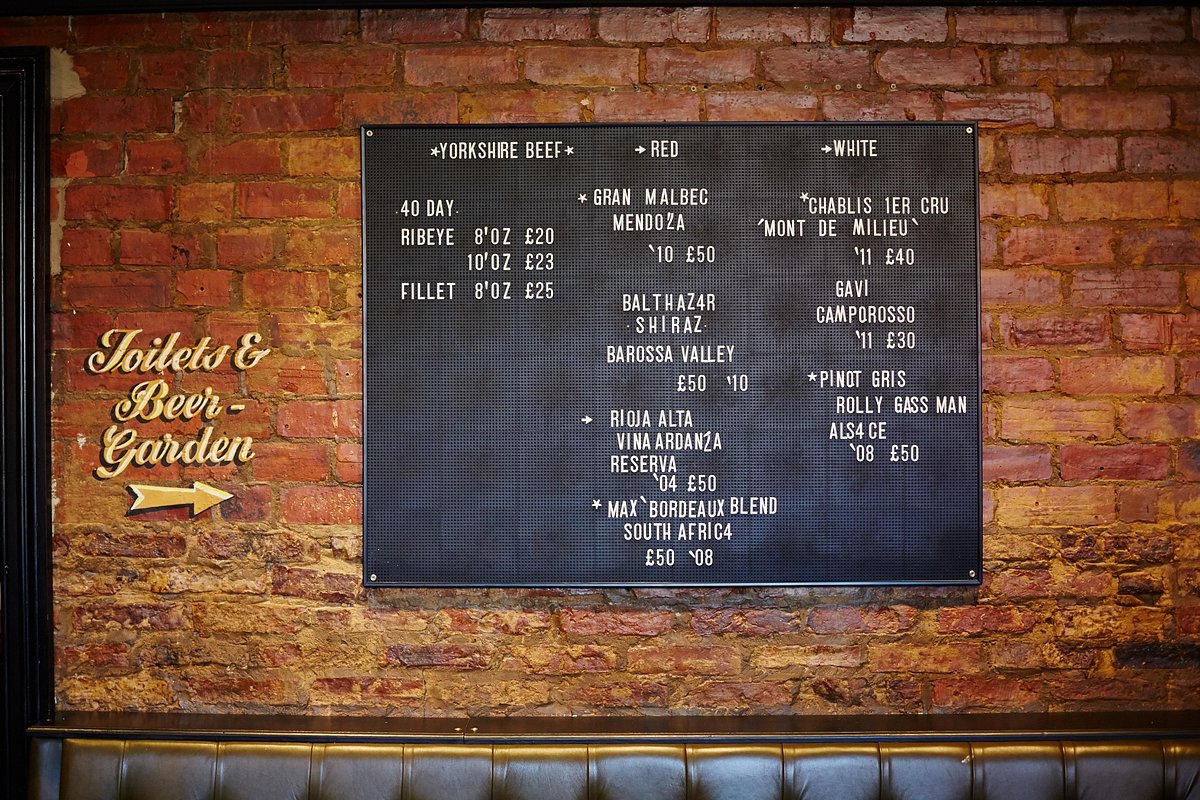 *YORKSHIRE BEEF*
40 DAY
RIBEYE 8'OZ £20
10'OZ £23
FILLET 8'OZ £25
→RED
* GRAN MALBEC
MENDO2A
'10 £50
BALTHAZ4R
·SHIRAZ·
BAROSSA VALLEY
£50 '10
→ RIOJA ALTA
VINA ARDAN2A
RESERVA
'04 £50
* MAX'BORDEAUX BLEND
SOUTH AFRIC4
£50 '08
→WHITE
*CHABLIS 1ER CRU
'MONT DE MILIEU'
'11 £40
GAVI
CAMPOROSSO
'11 £30
*PINOT GRIS
ROLLY GASS MAN
ALS4CE
'08 £50
Toilets &
Beer-
Garden